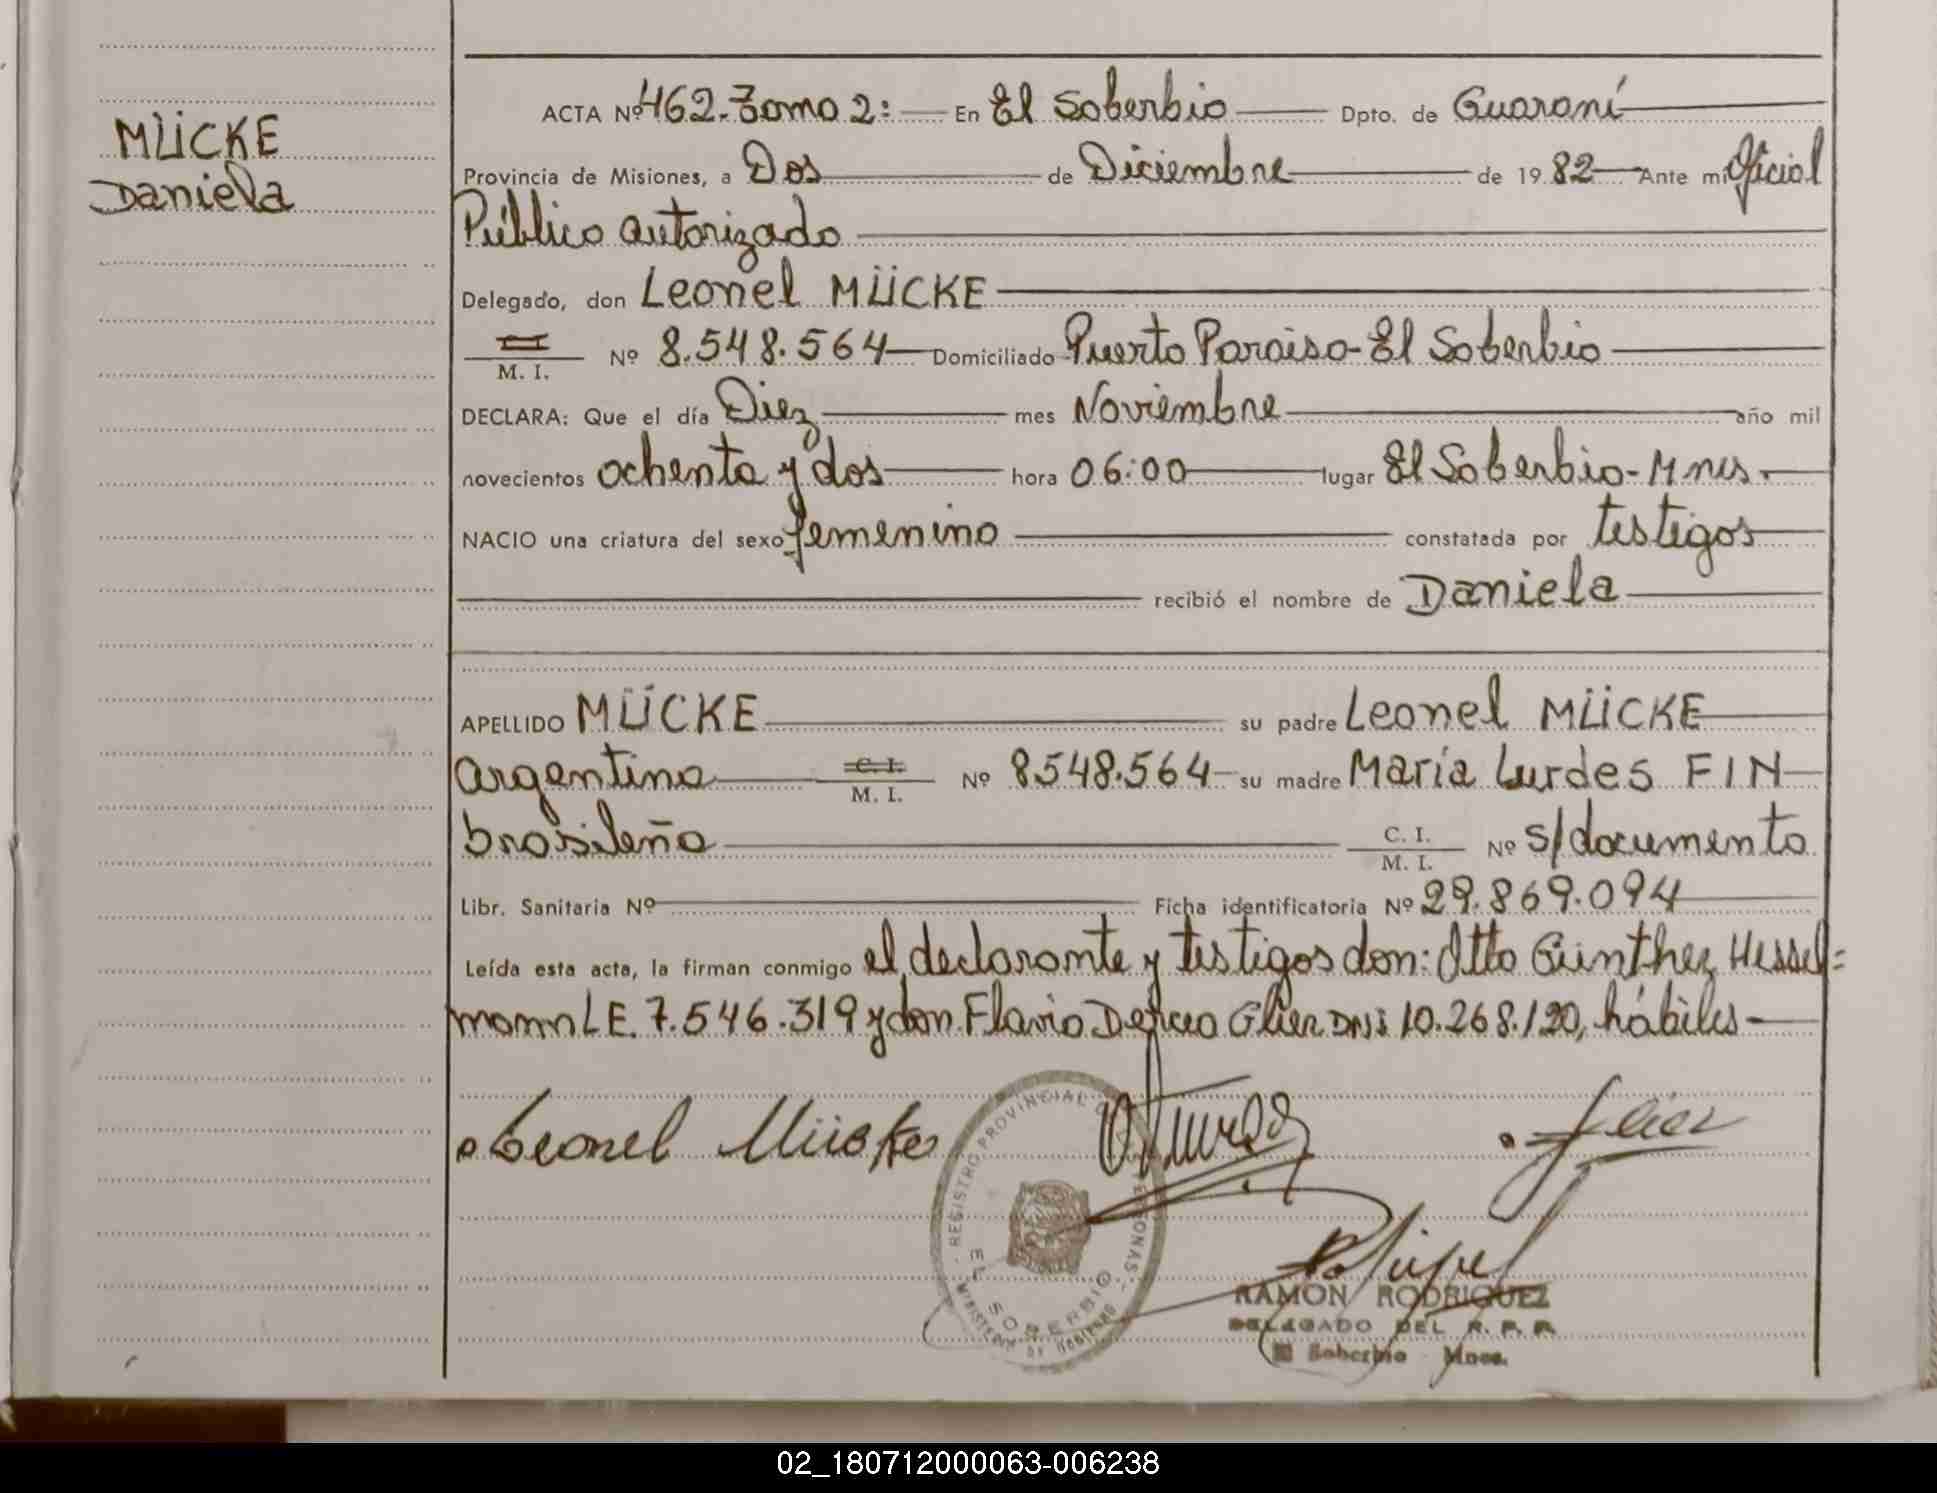 MÜCKE
Daniela
ACTA Nº 462. Tomo 2: En El Soberbio Dpto. de Guaraní
Provincia de Misiones, a Dos de Diciembre de 1982 Ante mi Oficial
Público autorizado
Delegado, don Leonel MÜCKE
M. I. Nº 8.548.564 Domiciliado Puerto Paraiso - El Soberbio
DECLARA: Que el día Diez mes Noviembre año mil
novecientos ochenta y dos hora 06:00 lugar El Soberbio - Mnes.
NACIO una criatura del sexo femenino constatada por testigos
recibió el nombre de Daniela
APELLIDO MÜCKE su padre Leonel MÜCKE
argentino C. I. M. I. Nº 8.548.564 su madre María Lurdes FIN
brasileña C. I. M. I. Nº s/documento
Libr. Sanitaria Nº Ficha identificatoria Nº 29.869.094
Leída esta acta, la firman conmigo el declarante y testigos don: Otto Günther Hessel=
mann L E. 7.546.319 y don Flavio Glier DNI 10.268.120, hábiles
Leonel Mücke
REGISTRO PROVINCIAL PERSONAS
EL SOBERBIO
MINISTERIO DE GOBIERNO
RAMON RODRIGUEZ
DELEGADO DEL R. P. P.
El Soberbio - Mnes.
02_180712000063-006238